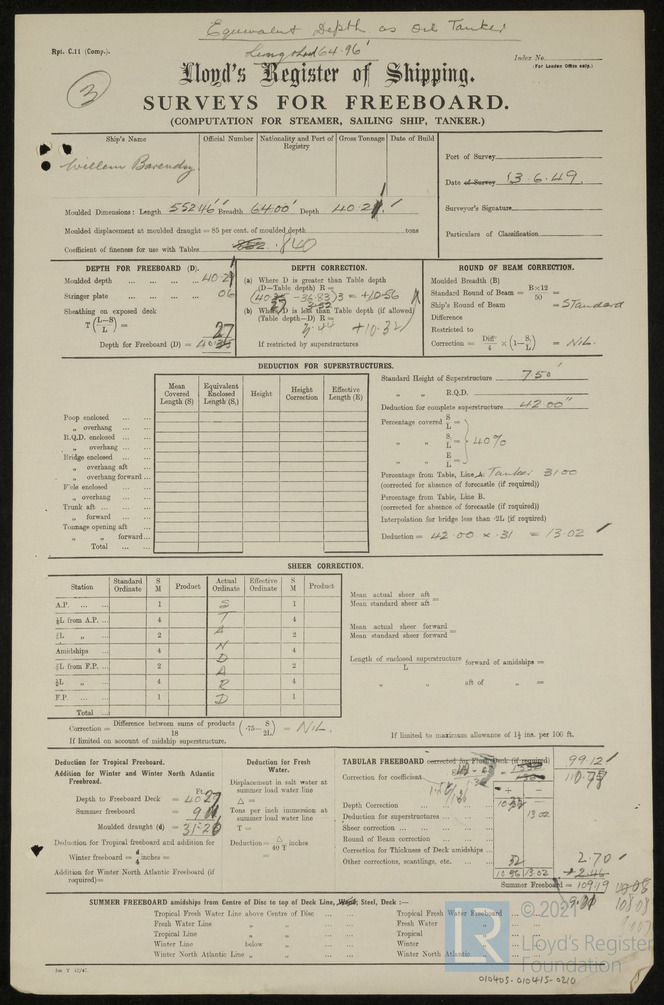 Equivalent Depth as Oil Tanker
Lengthed 64.96'
Rpt. C.11 (Comp.).
Index No.
(For London Office only.)
3
Lloyd's Register of Shipping.
SURVEYS FOR FREEBOARD.
(COMPUTATION FOR STEAMER, SAILING SHIP, TANKER.)
Ship's Name Official Number Nationality and Port of Registry Gross Tonnage Date of Build
Willem Barendsz
Port of Survey
Date of Survey 13.6.49.
Surveyor's Signature
Particulars of Classification
Moulded Dimensions: Length 552.46' Breadth 64.00' Depth
Moulded displacement at moulded draught = 85 per cent. of moulded depth tons
Coefficient of fineness for use with Tables .840
DEPTH FOR FREEBOARD (D).
Moulded depth
Stringer plate 06
Sheathing on exposed deck
T (L—S/L) =
Depth for Freeboard (D) =
DEPTH CORRECTION.
(a) Where D is greater than Table depth
(D—Table depth) R =
(b) Where D is less than Table depth (if allowed)
(Table depth—D) R =
+10.32
If restricted by superstructures
ROUND OF BEAM CORRECTION.
Moulded Breadth (B)
Standard Round of Beam = B×12/50 =
Ship's Round of Beam = Standard
Difference
Restricted to
Correction = Diff/4 × (1—S₁/L) = NiL.
DEDUCTION FOR SUPERSTRUCTURES.
Mean Covered Length (S) Equivalent Enclosed Length (S₁) Height Height Correction Effective Length (E)
Poop enclosed
„ overhang
R.Q.D. enclosed
„ overhang
Bridge enclosed
„ overhang aft
„ overhang forward
F'cle enclosed
„ overhang
Trunk aft
„ forward
Tonnage opening aft
„ „ forward
Total
Standard Height of Superstructure 7.50'
„ „ R.Q.D.
Deduction for complete superstructure 42.00"
Percentage covered S/L =
„ „ S₁/L = 40%
„ „ E/L =
Percentage from Table, Line A. Tanker 31.00
(corrected for absence of forecastle (if required))
Percentage from Table, Line B.
(corrected for absence of forecastle (if required))
Interpolation for bridge less than ·2L (if required)
Deduction = 42.00 × .31 = 13.02
SHEER CORRECTION.
Station Standard Ordinate S M Product Actual Ordinate Effective Ordinate S M Product
A.P. 1 S 1
⅙L from A.P. 4 T 4
⅓L „ 2 A 2
Amidships 4 N 4
⅓L from F.P. 2 D 2
⅙L „ 4 A R 4
F.P. 1 D 1
Total
Mean actual sheer aft
Mean standard sheer aft =
Mean actual sheer forward
Mean standard sheer forward =
Length of enclosed superstructure / L forward of amidships =
„ „ aft of „ =
Correction = Difference between sums of products / 18 (·75— S/2L) = NiL.
If limited on account of midship superstructure.
If limited to maximum allowance of 1½ ins. per 100 ft.
Deduction for Tropical Freeboard.
Addition for Winter and Winter North Atlantic Freeboard.
Depth to Freeboard Deck =
Summer freeboard =
Moulded draught (d) =
Deduction for Tropical freeboard and addition for
Winter freeboard = d/4 inches =
Addition for Winter North Atlantic Freeboard (if required)=
Deduction for Fresh Water.
Displacement in salt water at summer load water line
Δ =
Tons per inch immersion at summer load water line
T =
Deduction = Δ/40 T inches
=
TABULAR FREEBOARD corrected for Flush Deck (if required) 99.12
Correction for coefficient
+ —
Depth Correction
Deduction for superstructures 13.02
Sheer correction
Round of Beam correction
Correction for Thickness of Deck amidships
Other corrections, scantlings, etc.
2.70
+2.46
Summer Freeboard = 109.19
SUMMER FREEBOARD amidships from Centre of Disc to top of Deck Line, Wood, Steel, Deck:—
Tropical Fresh Water Line above Centre of Disc
Fresh Water Line „ „
Tropical Line „ „
Winter Line below „
Winter North Atlantic Line „ „
Tropical Fresh Water Freeboard
Fresh Water „
Tropical „
Winter „
Winter North Atlantic „
© 2021
LR
Lloyd's Register
Foundation
010405-010415-0210